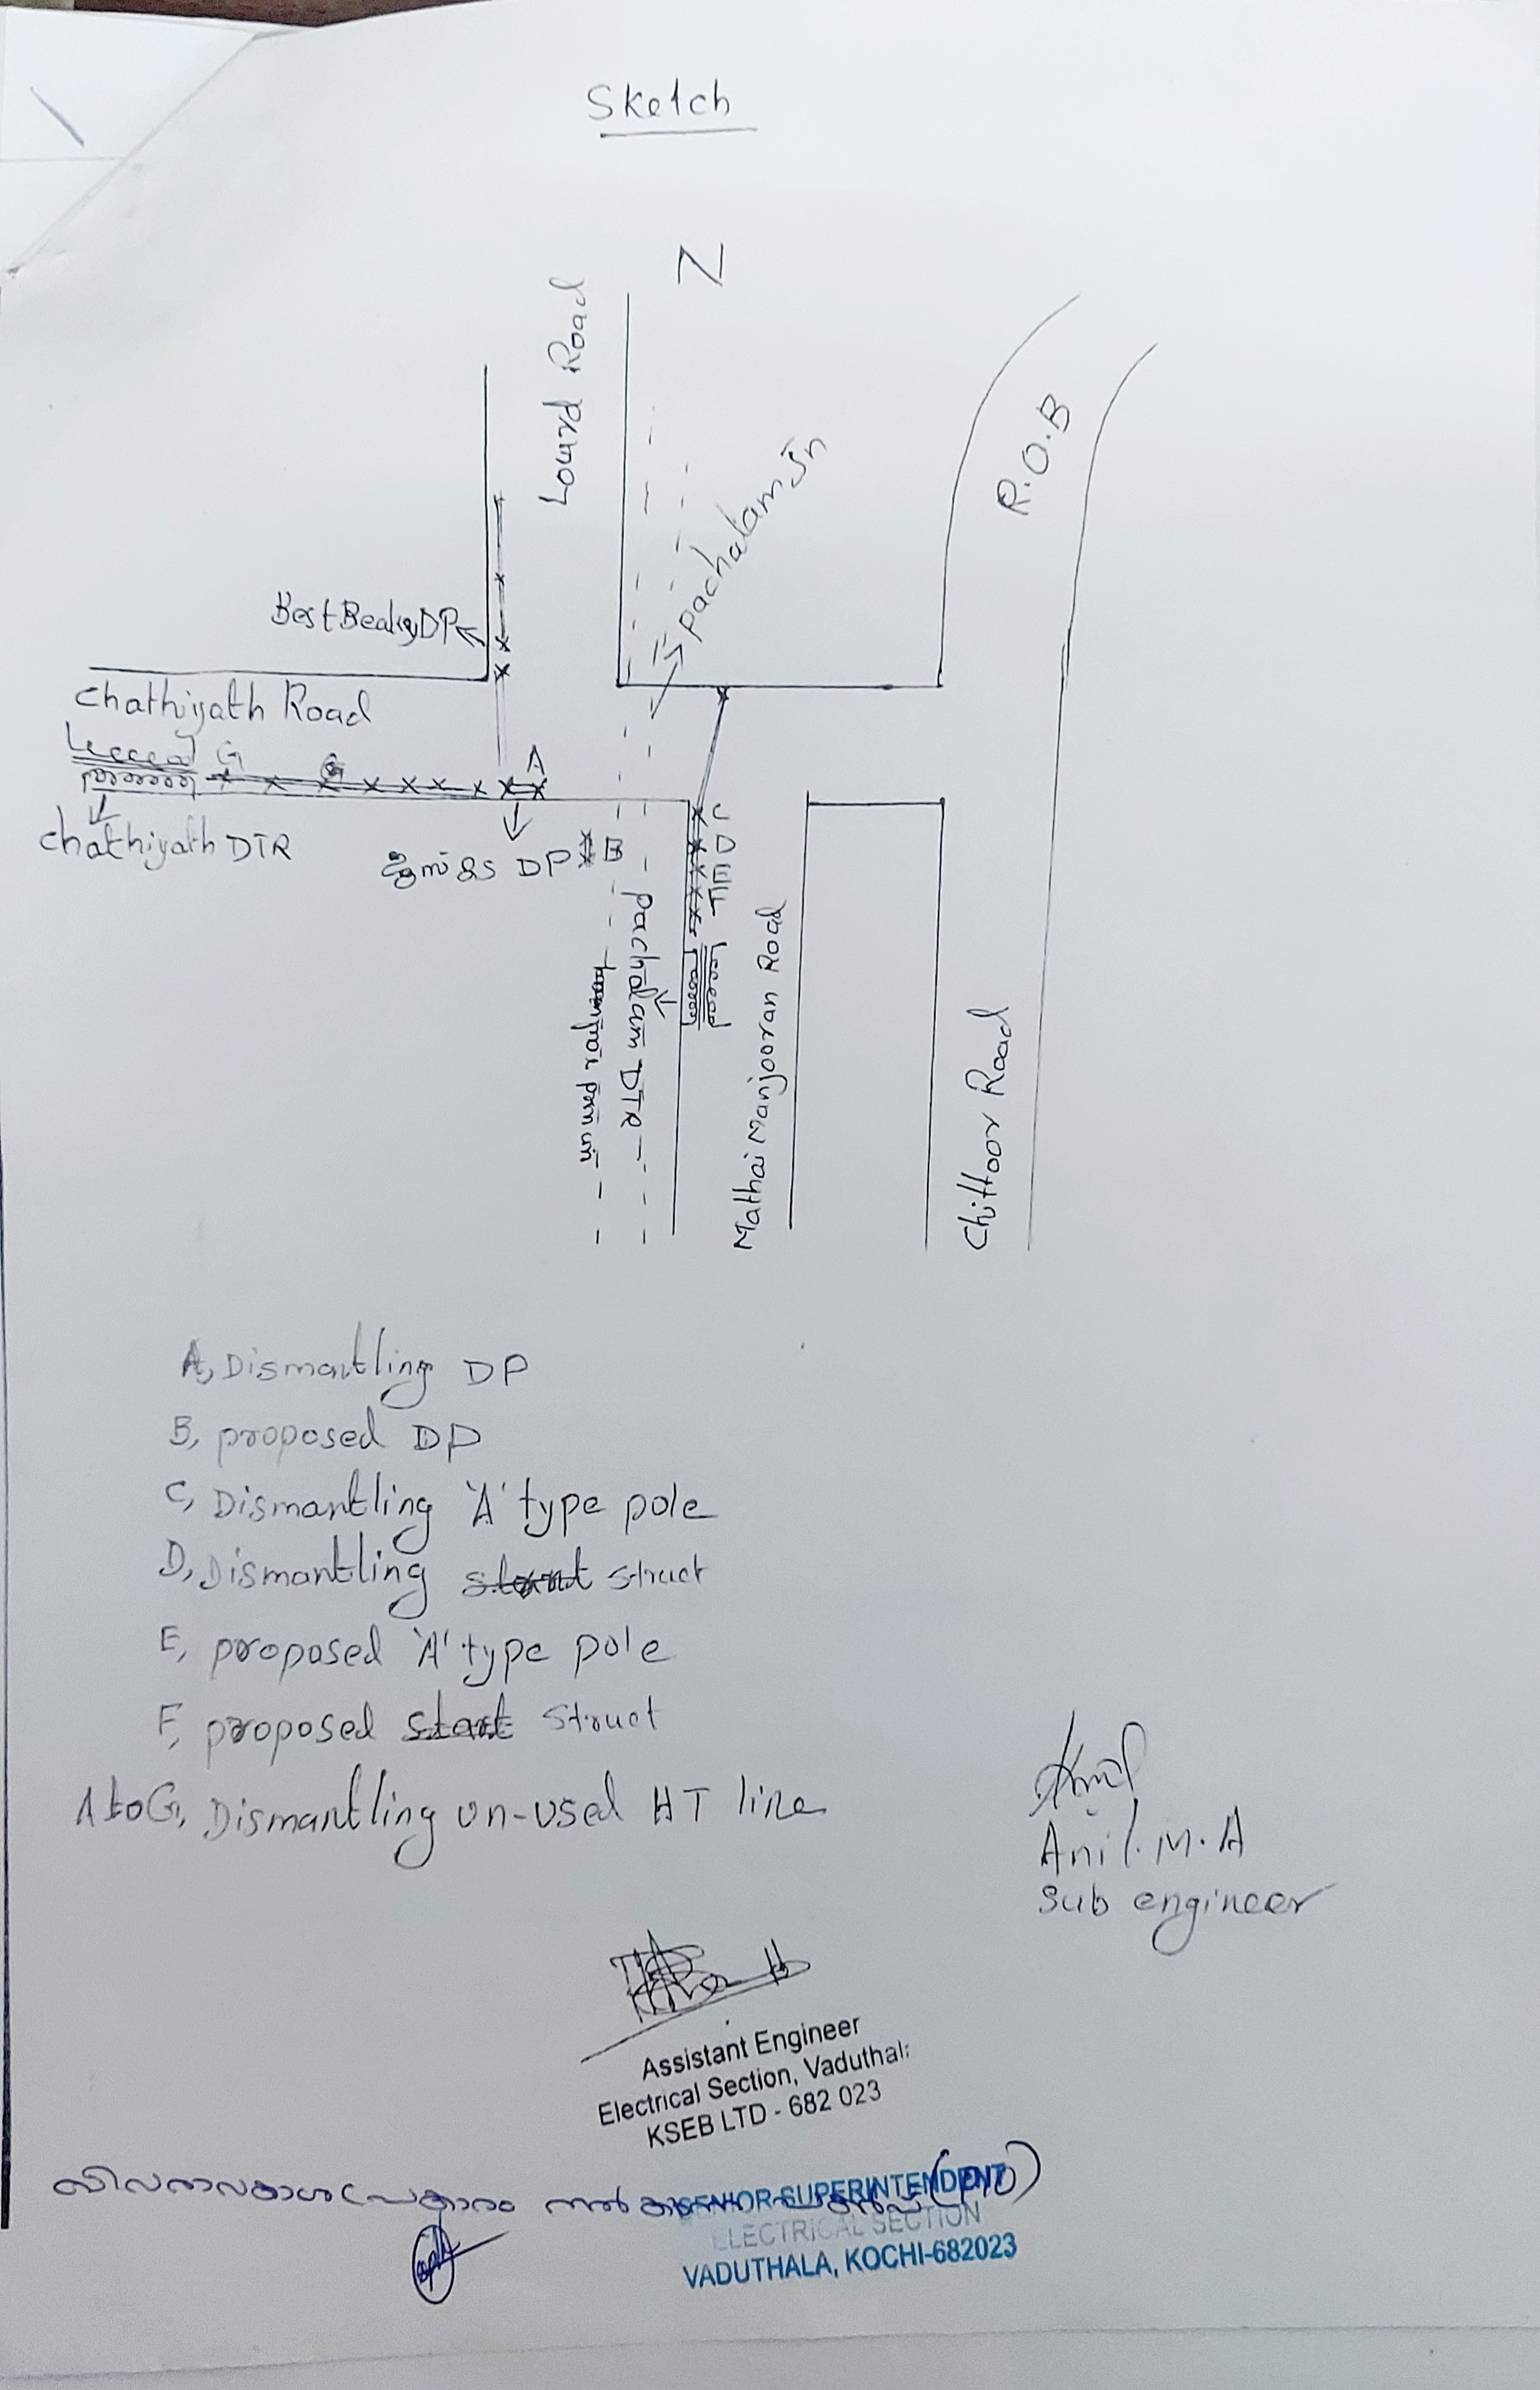 Sketch
N
Lourd Road
R.O.B
pachalam Jn
Best Beakery DP
Chathiyath Road
G
G
A
Chathiyath DTR
DP
B
C
D
E
F
un used railway
pachalam DTR
Mathai Manjooran Road
Chittoor Road
A, Dismantling DP
B, proposed DP
C, Dismantling 'A' type pole
D, Dismantling struct
E, proposed 'A' type pole
F, proposed struct
A to G, Dismantling un-used HT line
Anil. M. A
Sub engineer
Assistant Engineer
Electrical Section, Vaduthal
KSEB LTD - 682 023
വിവരാവകാശപ്രകാരം
SENIOR SUPERINTENDENT
ELECTRICAL SECTION
VADUTHALA, KOCHI-682023